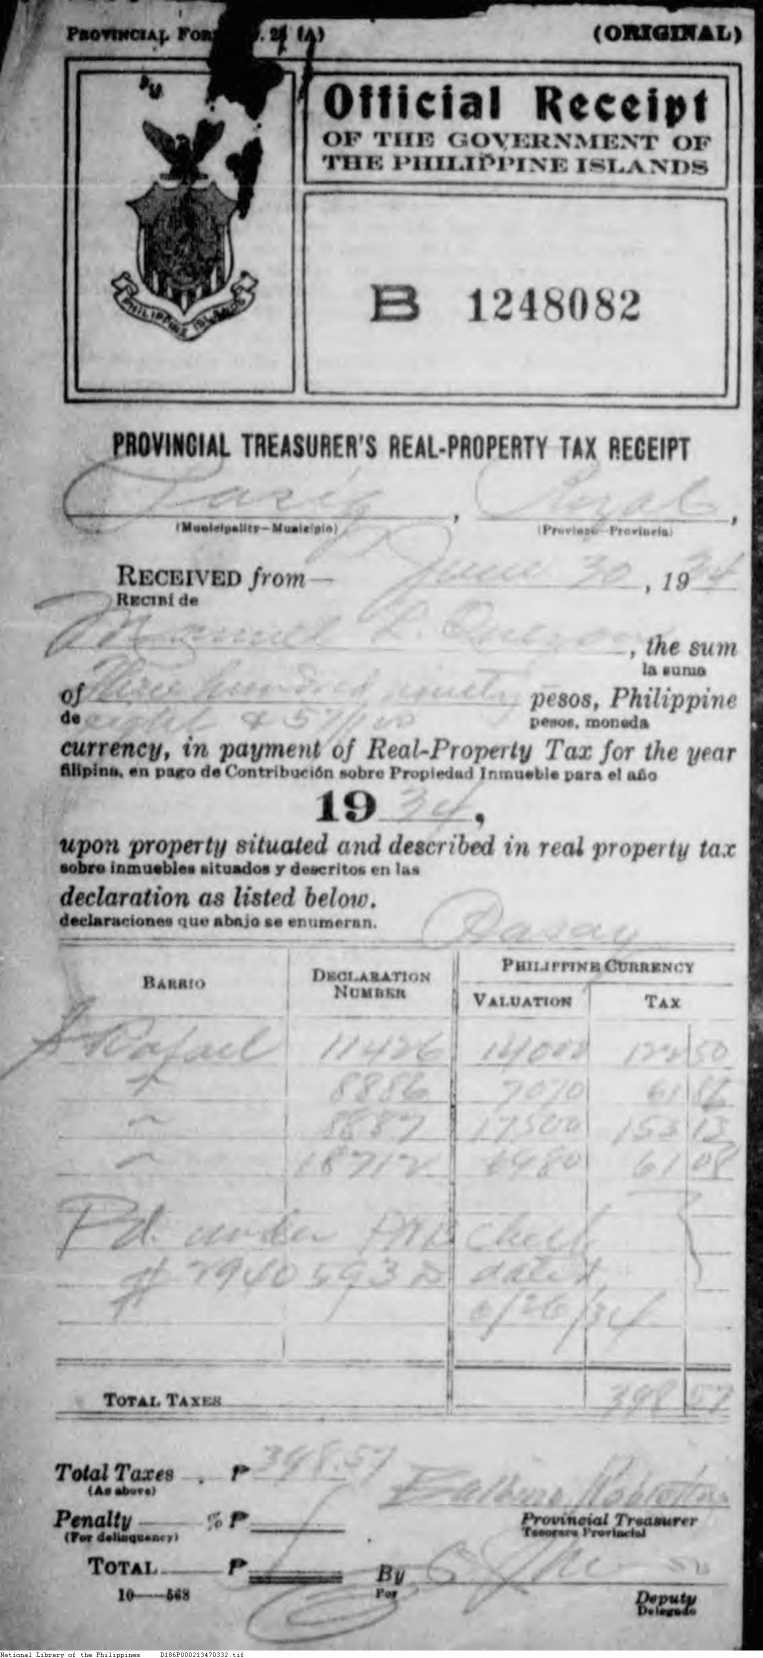 PROVINCIAL FORM . 24 (A) (ORIGINAL)
Official Receipt
OF THE GOVERNMENT OF
THE PHILIPPINE ISLANDS
PHILIPPINE ISLANDS
B 1248082
PROVINCIAL TREASURER'S REAL-PROPERTY TAX RECEIPT
Pasig, Rizal,
(Municipality—Municipio) (Province—Provincia)
RECEIVED from— June 30, 1934
RECIBÍ de
Manuel L. Quezon, the sum
la suma
of Three hundred ninety pesos, Philippine
de eight & 57/100 pesos, moneda
currency, in payment of Real-Property Tax for the year
filipina, en pago de Contribución sobre Propiedad Inmueble para el año
1934,
upon property situated and described in real property tax
sobre inmuebles situados y descritos en las
declaration as listed below.
declaraciones que abajo se enumeran.
Pasay
BARRIO DECLARATION NUMBER PHILIPPINE CURRENCY
VALUATION TAX
S Rafael 11426 14000 122 50
" 8886 7070 61 86
" 8887 17500 153 13
" 18712 6980 61 08
Pd. under PNB Check
# 294059 3 D dated
6/26/34
TOTAL TAXES 398 57
Total Taxes . ₱ 398.57
(As above)
Balbino Robles
Penalty — % ₱ Provincial Treasurer
(For delinquency) Tesorero Provincial
TOTAL ₱ By
Por
10—568 Deputy
Delegado
National Library of the Philippines D186P000213470332.tif